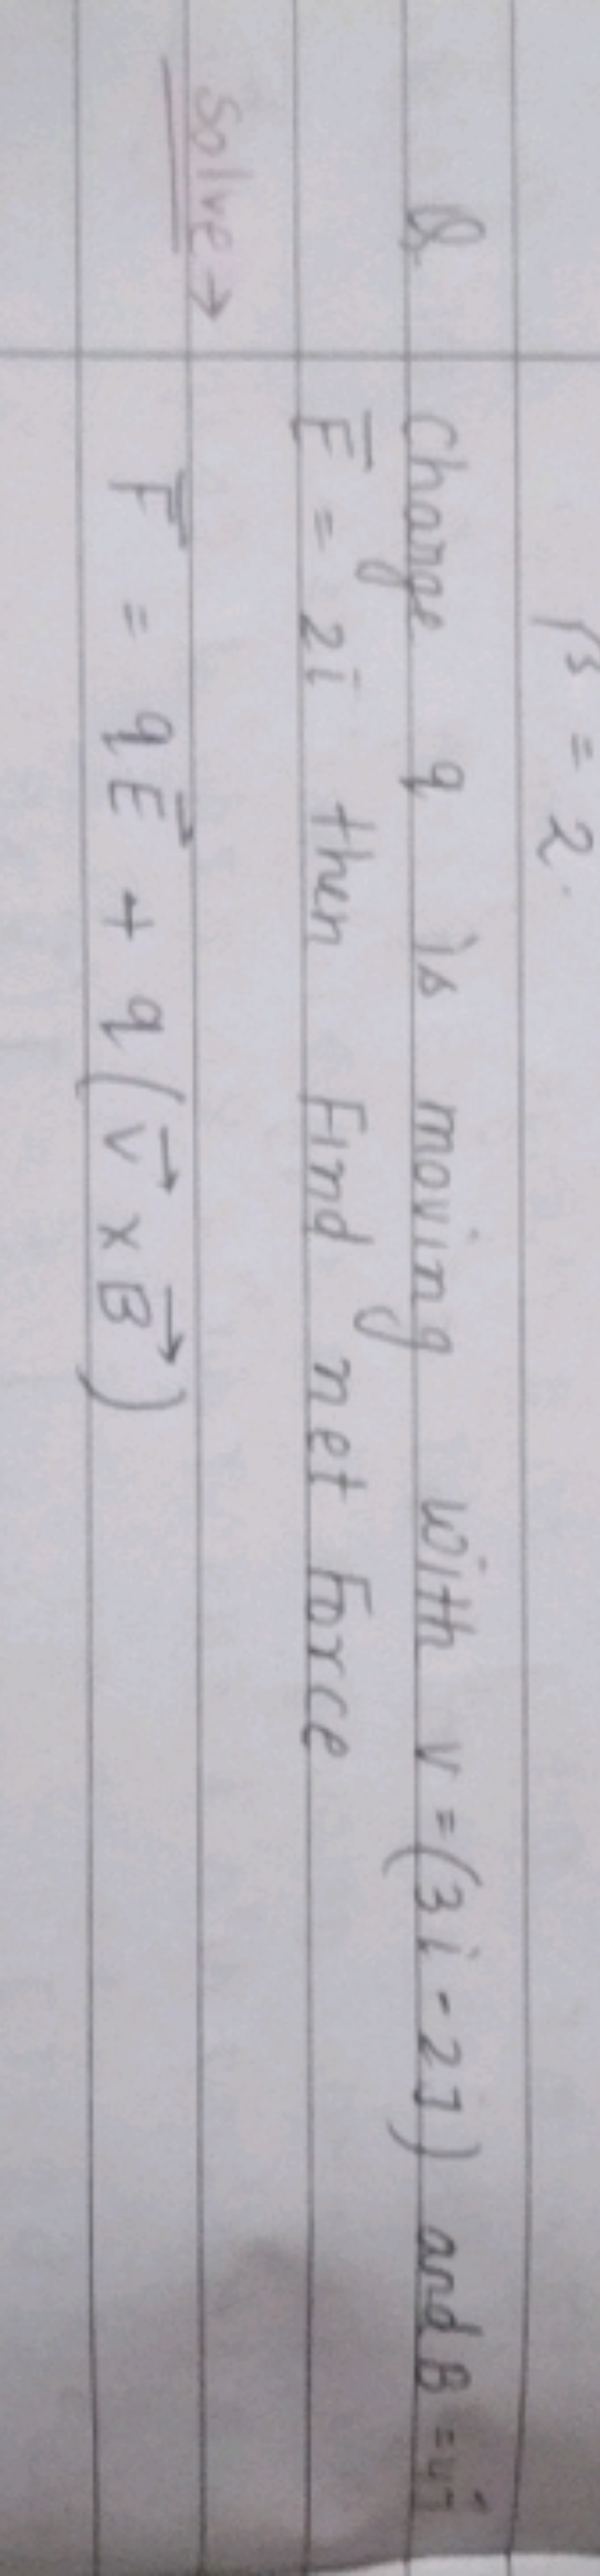 β = 2.
Q. Charge q is moving with v = (3i - 2J) and B = 4J
E̅ = 2i then Find net Force
Solve →
F̅ = qE⃗ + q(v⃗ × B⃗)